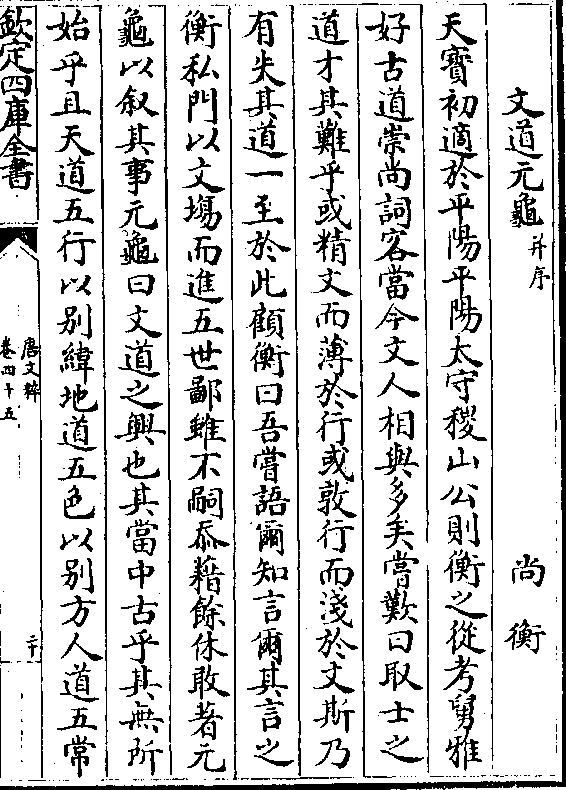 文道元龜并序 尚衡
天寳初適於平陽平陽太守稷山公則衡之從考舅雅
好古道崇尚詞客當今文人相與多矣嘗歎曰取士之
道才其難乎或精文而薄於行或敦行而淺於文斯乃
有失其道一至於此顧衡曰吾嘗語爾知言爾其言之
衡私門以文塲而進五世鄙雖不嗣忝藉餘休敢著元
龜以叙其事元龜曰文道之興也其當中古乎其無所
始乎且天道五行以别緯地道五色以别方人道五常
欽定四庫全書
唐文粹
卷四十五
二十